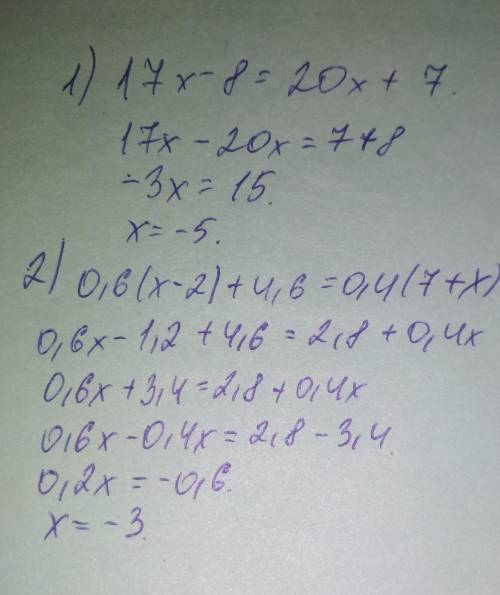 1) 17x - 8 = 20x + 7.
17x - 20x = 7 + 8
-3x = 15.
x = -5.
2) 0,6(x-2) + 4,6 = 0,4(7+x)
0,6x - 1,2 + 4,6 = 2,8 + 0,4x
0,6x + 3,4 = 2,8 + 0,4x
0,6x - 0,4x = 2,8 - 3,4.
0,2x = -0,6.
x = -3.